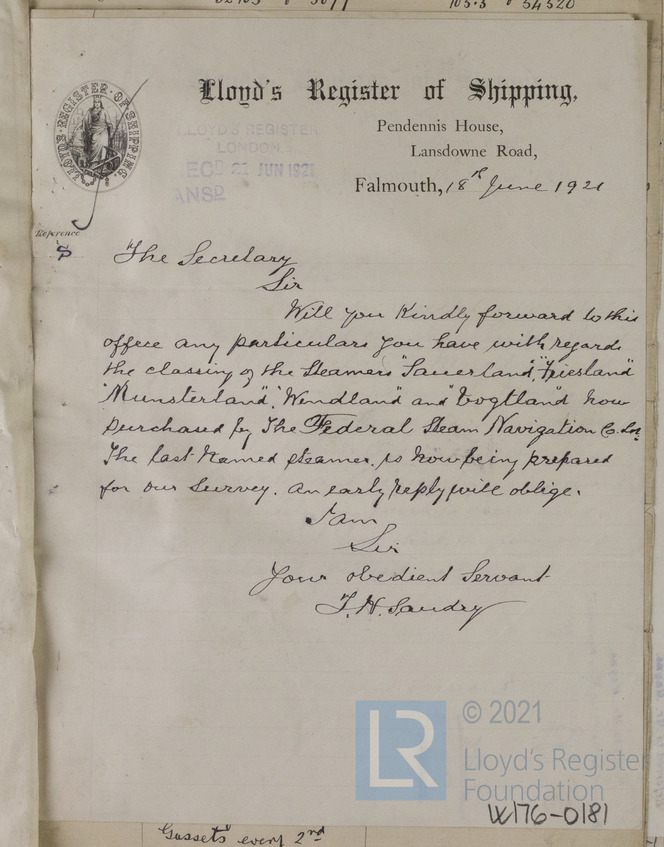 Lloyd's Register of Shipping,
Pendennis House,
Lansdowne Road,
Falmouth, 18th June 1921
LLOYD'S REGISTER OF SHIPPING.
LLOYD'S REGISTER
LONDON
REC'D 21 JUN 1921
ANSD
Reference
The Secretary
Sir
Will you kindly forward to this
office any particulars you have with regards
the classing of the steamers "Sauerland", "Friesland"
"Munsterland", "Wendland" and "Vogtland" now
purchased by The Federal Steam Navigation Co. Ld.
The last named steamer is now being prepared
for our survey. An early reply will oblige.
I am
Sir
Your obedient Servant
T. H. Sandry
LR © 2021
Lloyd's Register
Foundation
W176-0181
Gussets every 2nd